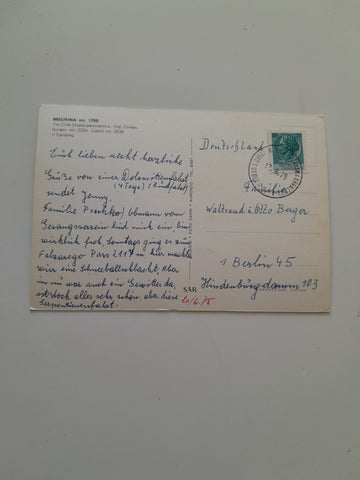 MISURINA mt. 1756
Tre Cime Strada panoramica - Drei Zinnen
Sorapis mt. 3205 - Cadini mt. 2839
Il Camping
Euch lieben recht herzliche
Grüße von einer Dolomitenfahrt
(4 Tage) (Rundfahrt)
sendet Jenny.
Familie Obmann vom
Gesangsverein sind mit, ein bin
wirklich froh. Sonntags ging es zum
Falzarego Pass 2117 m hier machte
wir eine Schneeballschlacht, Aber
in war auch ein Gewitter da,
ist doch alles sehr schön, aber diese
Serpentinenfahrt.
Deutschland
Familie
Waltraud u. Otto Berger
1 Berlin 45
Hindenburgdamm 103
SAR
20/6/75